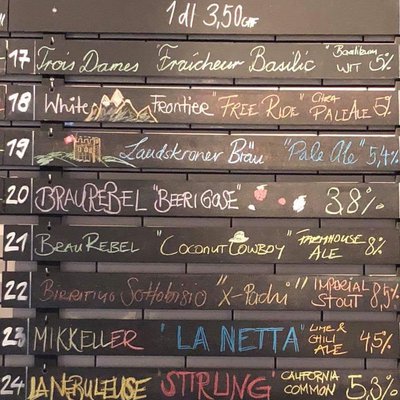 1 dl 3,50 CHF
17 Trois Dames "Fraîcheur Basilic" "Basilikum WIT 5%
18 White Frontier "FREE RIDE" Citra PALE ALE 5%
19 Landskroner Bräu "Pale Ale" 5,4%
20 BRAUREBEL "BEERI GOSE" 3,8%
21 BRAUREBEL "COCONUT COWBOY" FARMHOUSE ALE 8%
22 "X-Padu" IMPERIAL STOUT 8,5%
23 MIKKELLER "LA NETTA" LIME & CHILI ALE 4,5%
24 LA NEBULEUSE "STIRLING" CALIFORNIA COMMON 5,3%